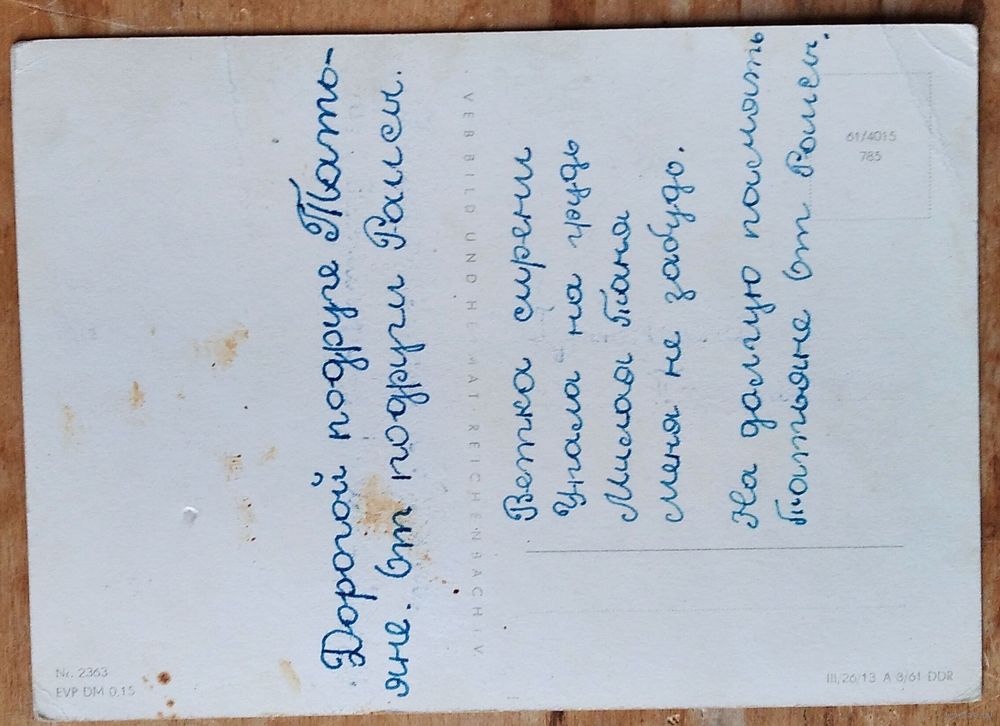 Дорогой подруге Тать-
яне. От подруги Раисы.
VEB BILD UND HEIMAT · REICHENBACH i. V
Ветка сирени
Упала на грудь
Милая Таня
меня не забудь.
На долгую память
Татьяне От Раисы.
61/4015
785
Nr. 2363
EVP DM 0,15
III, 26/13 A 3/61 DDR